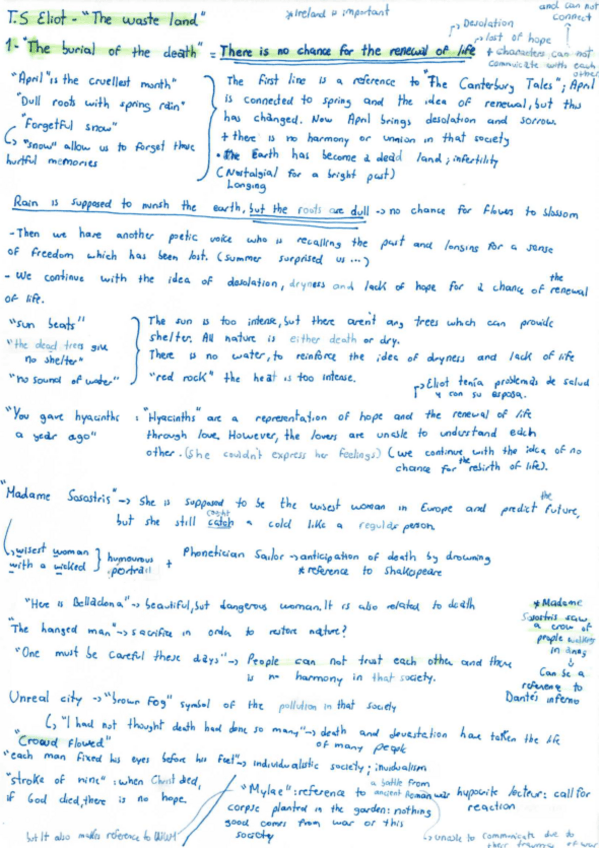 T.S Eliot - "The waste land"
*Ireland is important
and can not connect
Desolation
lost of hope
+ characters can not comunicate with each other.
1- "The burial of the death" = There is no chance for the renewal of life
"April" is the cruellest month"
"Dull roots with spring rain"
"Forgetful snow"
"snow" allow us to forget those
hurtful memories
The first line is a reference to "The Canterbury Tales"; April
is connected to spring and the idea of renewal, but this
has changed. Now April brings desolation and sorrow.
+ there is no harmony or unnion in that society
• The Earth has become a dead land; infertility
(Nostalgial for a bright past)
Longing
Rain is supposed to nurish the earth, but the roots are dull -> no chance for flowers to blossom
- Then we have another poetic voice who is recalling the past and longing for a sense
of freedom which has been lost. (summer surprised us ...)
- We continue with the idea of desolation, dryness and lack of hope for a chance of the renewal
of life.
"sun beats"
"the dead trees give
no shelter"
"no sound of water"
The sun is too intense, but there aren't any trees which can provide
shelter. All nature is either death or dry.
There is no water, to reinforce the idea of dryness and lack of life
"red rock" the heat is too intense.
Eliot tenía problemas de salud
y con su esposa.
"You gave hyacinths
a year ago"
: "Hyacinths" are a representation of hope and the renewal of life
through love. However, the lovers are unable to understand each
other. (She couldn't express her feelings) (we continue with the idea of no
chance for the rebirth of life).
"Madame Sosostris" -> She is supposed to be the wisest woman in Europe and predict the future,
but she still catch a cold like a regular person.
caught
wisest woman
with a wicked
humourous
portrait
+ Phonetician Sailor -> anticipation of death by drowning
* reference to Shakespeare
"Here is Belladona" -> beautiful, but dangerous woman. It is also related to death
"The hanged man" -> sacrifice in order to restore nature?
"One must be careful these days" -> People can not trust each other and there
is no harmony in that society.
* Madame
Sosostris saw
a crow of
people walking
in rings
Can be a
reference to
Dante's inferno
Unreal city -> "brown Fog" symbol of the pollution in that society
"I had not thought death had done so many" -> death and devastation have taken the life
of many people
"Crowd flowed"
"each man fixed his eyes before his feet" -> individualistic society;
"stroke of nine": when Christ died,
if God died, there is no hope.
but It also makes reference to WWI
"Mylae": reference to a battle from ancient Roman war
corpse planted in the garden: nothing
good comes from war or this
society
hypocrite lecteur: call for
reaction
unable to communicate due to
their traumas of war